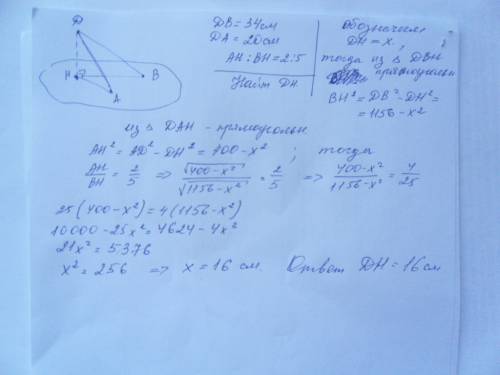 D
H
A
B
DB = 34 см
DA = 20 см
AH : BH = 2:5
Найти DH.
обозначим
DH = x.,
тогда из Δ DBH
прямоугольн
BH² = DB² - DH² =
= 1156 - x²
из Δ DAH - прямоугольн
AH² = AD² - DH² = 400 - x² ; тогда
AH/BH = 2/5 => √(400-x²)/√(1156-x²) = 2/5 => (400-x²)/(1156-x²) = 4/25
25(400-x²) = 4(1156-x²)
10000 - 25x² = 4624 - 4x²
21x² = 5376
x² = 256 => x = 16 см. Ответ DH = 16 см